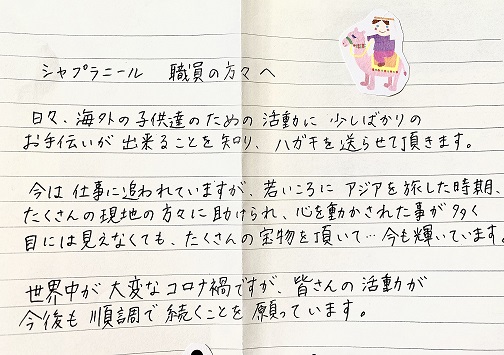 シャプラニール 職員の方々へ
日々、海外の子供達のための活動に少しばかりの
お手伝いが出来ることを知り、ハガキを送らせて頂きます。
今は仕事に追われていますが、若いころにアジアを旅した時期、
たくさんの現地の方々に助けられ、心を動かされた事が多く
目には見えなくても、たくさんの宝物を頂いて…今も輝いています。
世界中が大変なコロナ禍ですが、皆さんの活動が
今後も順調で続くことを願っています。